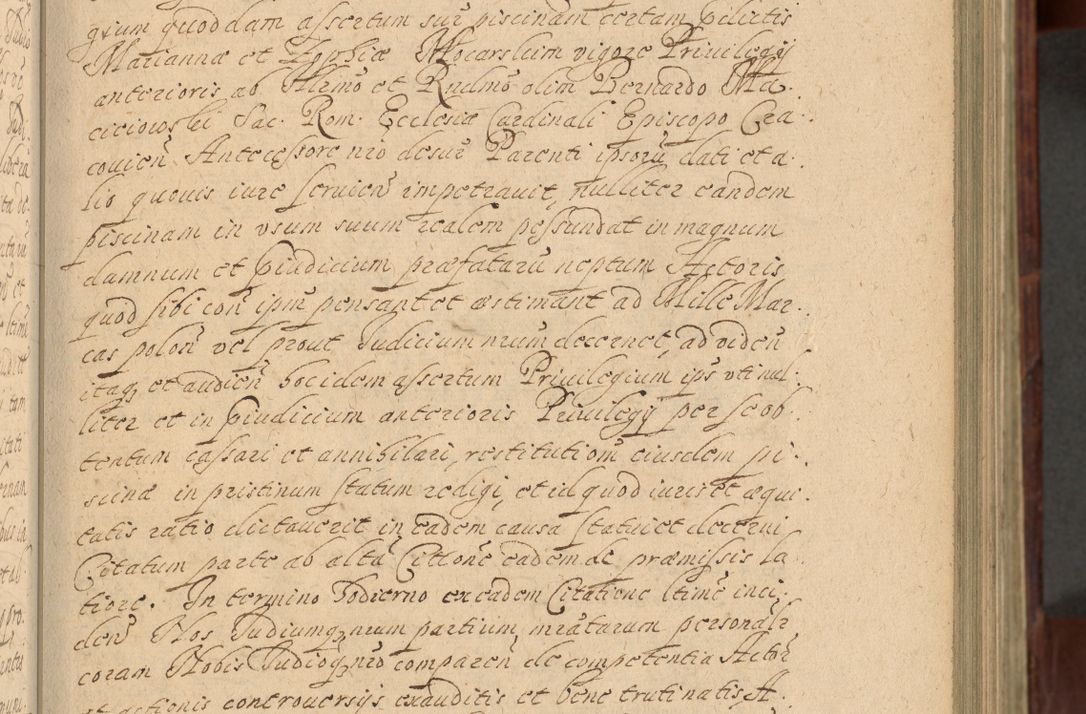 gium quoddam assertum sup piscinam certam
Mariannæ et Zophiæ Mocarskim vigore Priuilegij
anterioris ab Illrmo et Rndmo olim Bernardo Ma
cieiowski Sac. Rom. Ecclesiæ Cardinali Episcopo Cra
couien Antecessore nro desup Parenti ipsorū dati et a
lio quouis iure seruien impetrauit, nulliter eandem
piscinam in vsum suum realem pessundat in magnum
damnum et præfatarū neptum Actoris
quod sibi con ipm pensant et æstimant ad Mille Mar
cas polon vel prout Judicium nrum decernet, ad viden
itaq et audien hoc idem assertum Priuilegium ips vti nul
liter et in anterioris Priuilegij per se ob
tentum cassari et annihilari, restitutionē eiusdem pi
scinæ in pristinum statum redigi, et id quod iuris et æqui
tatis ratio dictauerit in eadem causa statui et decerni
Citatum parte ab altā Cittone eadem de præmissis la
tiore. In termino hodierno ex eadem Citatione ltimē inci
den Nos Judiumq nrum partium mratarum personalr
coram Nobis Judioq nro comparen de competentia Actor
et actionis controuersijs exauditis et bene trutinatis, A